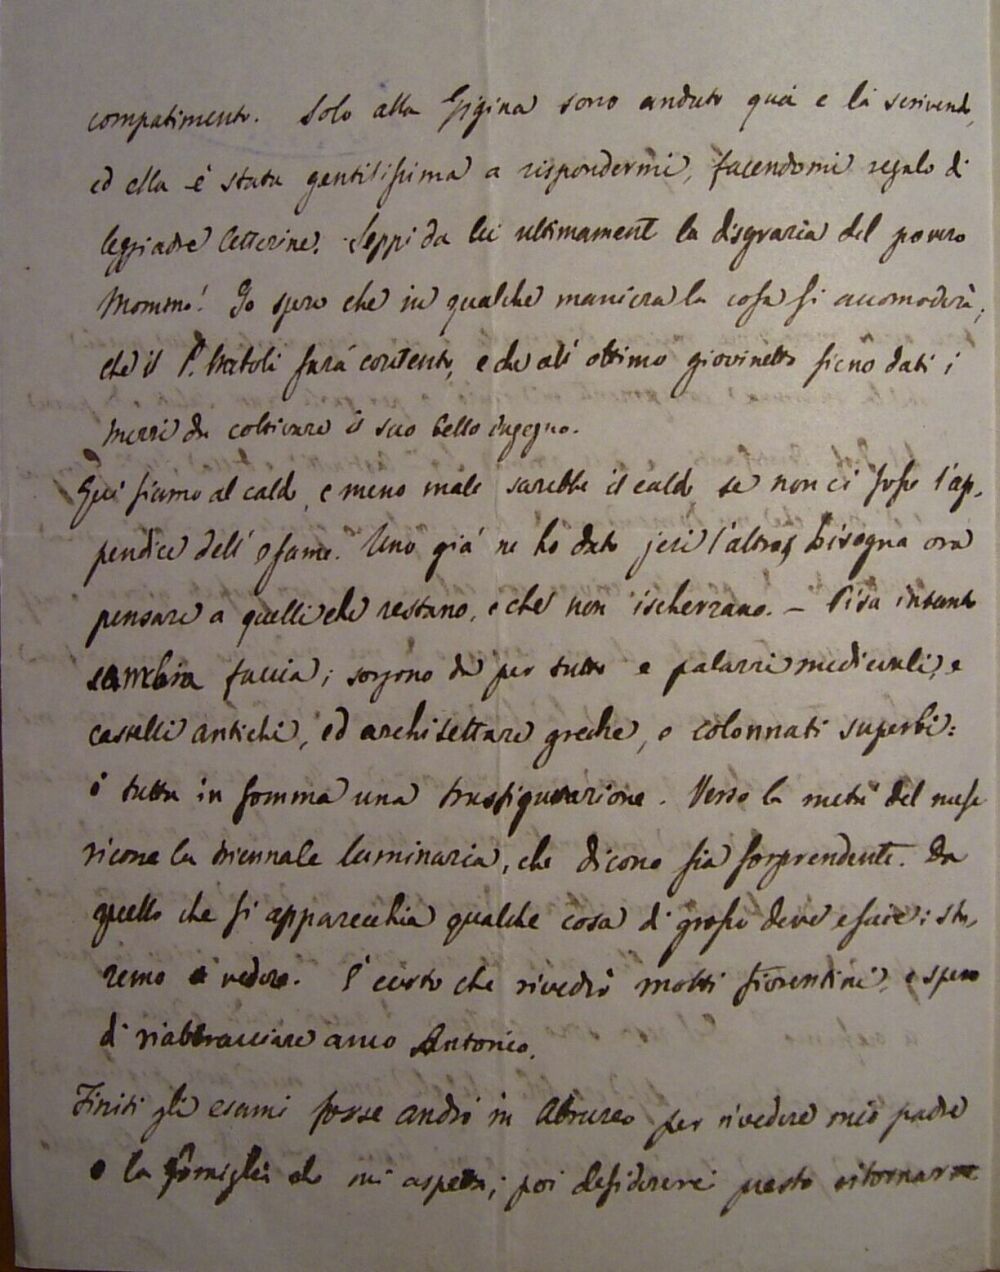 compatimento. Solo alla Gigina sono andato quà e là scrivendo,
ed ella è stata gentilissima a rispondermi, facendomi regalo di
leggiadre letterine. Seppi da lei ultimament la disgrazia del povero
Mommo! Io spero che in qualche maniera la cosa si accomoderà;
che il P. sarà contento, e che all' ottimo giovinetto sieno dati i
mezzi da coltivare il suo bello ingegno.
Qui siamo al caldo, e meno male sarebbe il caldo se non ci fosse l'ap-
pendice dell' esame. Uno già ne ho dato jeri l'altro, bisogna ora
pensare a quelli che restano, e che non ischerzano. – Pisa intanto
cambia faccia; sorgono da per tutto e palazzi medievali, e
castelli antichi, ed architetture greche, e colonnati superbi:
è tutta in somma una trasfigurazione. Verso la metà del mese
ricorre la triennale luminaria, che dicono sia sorprendente. Da
quello che si apparecchia qualche cosa di grosso deve essere: sta-
remo a vedere. È certo che rivedrò molti fiorentini, e spero
di riabbracciare anco Antonio.
Finiti gli esami forse andrò in Abruzzo per rivedere mio padre
e la famiglia che mi aspetta; poi desidererei presto ritornarne